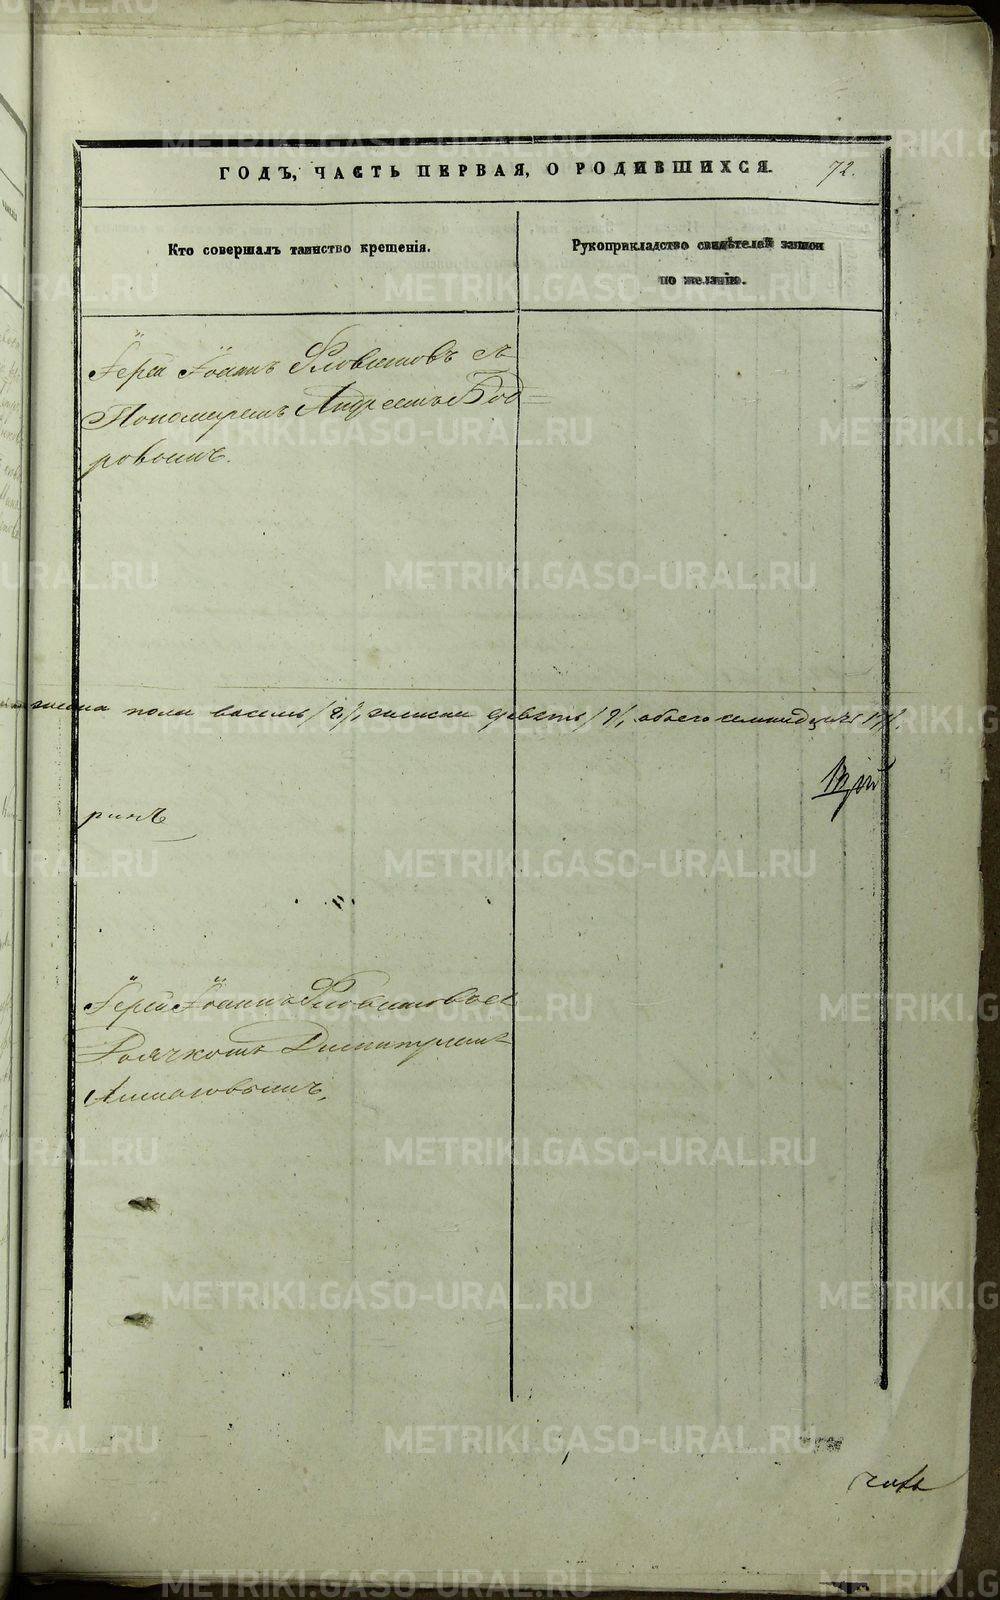 ГОДЪ, ЧАСТЬ ПЕРВАЯ, О РОДИВШИХСЯ. 72.
Кто совершалъ таинство крещенія.
Рукоприкладство свидѣтелей записи
по желанію.
Іерей Іоаннъ Словцовъ съ
Пономаремъ Андреемъ Бод=
ровымъ.
пола восемь /8/, женска девять /9/, обоего семнадцать /17/.
ринъ
Іерей Іоаннъ съ
Дьячкомъ Димитріемъ
METRIKI.GASO-URAL.RU